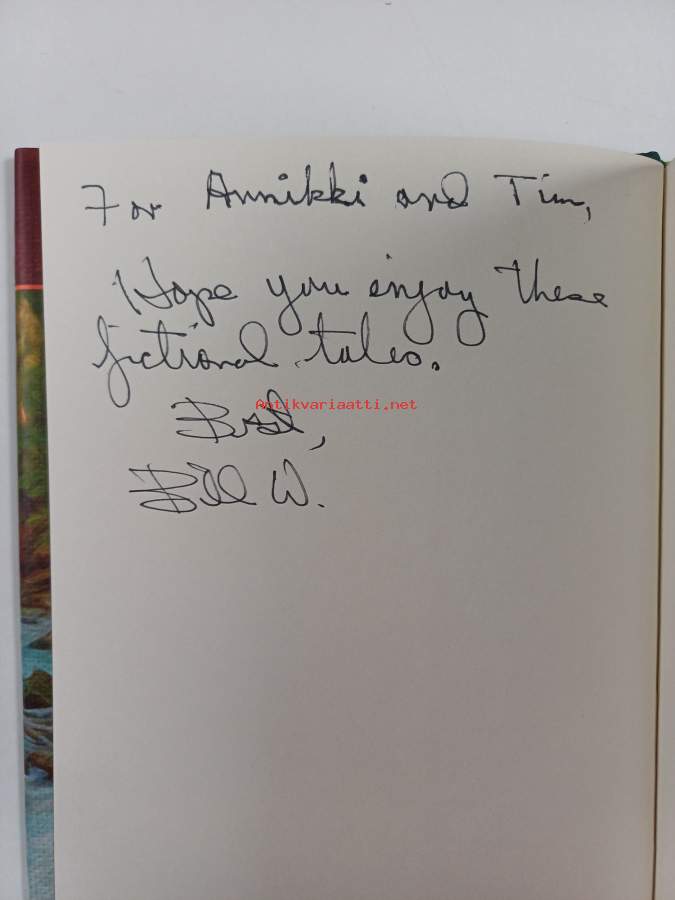 For Annikki and Tim,
Hope you enjoy these
fictional tales.
Antikvariaatti.net
Best,
Bill W.